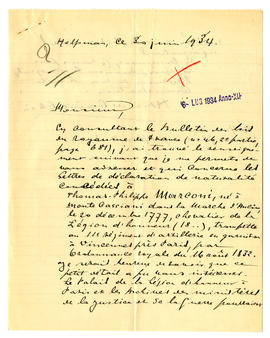 Helfaut, ce 30 juin 1934.
6- LUG 1934 Anno XII
Monsieur,
En consultant le Bulletin de lois
du royaume de France (no 46, 2e partie,
page 681), j'ai trouvé le renseigne-
ment suivant que je me permets de
vous adresser et qui concerne les
lettres de déclaration de naturalité
concédées à
Thomas-Philippe Marconi, né à
Monte Casciano dans la Marche d'Ancône
le 20 décembre 1777, chevalier de la
Légion d'honneur (18..), trompette
au 11e régiment d'artillerie en garnison
à Vincennes près Paris, par
Ordonnance royale du 16 août 1832.
Je serais heureux de voir que ce
petit détail a pu vous intéresser.
Le Palais de la Légion d'honneur à
Paris et les Archives du ministère
de la justice et de la guerre pourraient